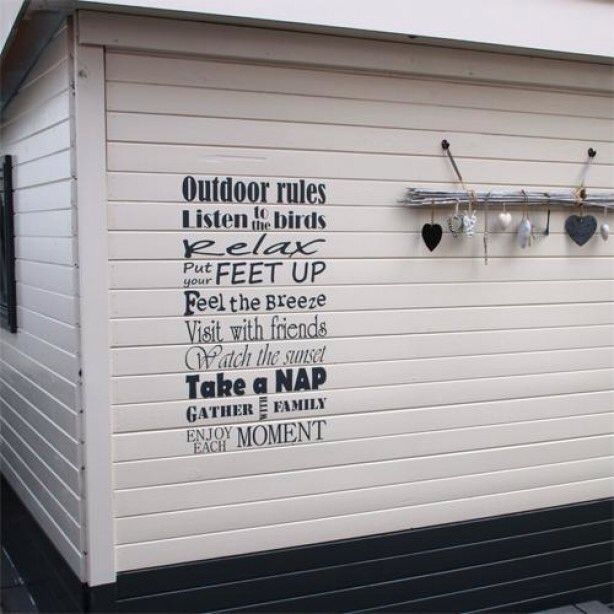 Outdoor rules
Listen to the birds
Relax
Put your FEET UP
Feel the Breeze
Visit with friends
Watch the sunset
Take a NAP
GATHER WITH FAMILY
ENJOY EACH MOMENT